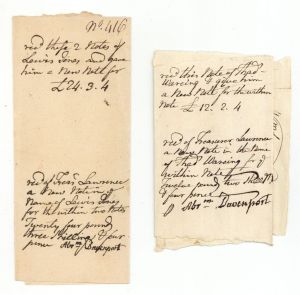 No. 416
recd these 2 Notes of
Lewis Jones and gave
him a New Note for
£24. 3. 4
recd of Treasr Lawrence
a New Note in ye
Name of Lewis Jones
for the within two Notes
Twenty four pound
three Shilling & four
pence Abrm Davenport
recd this Note of Thads
Wareing & gave him
a New Note for the within
Note £12. 2. 4
recd of Treasurer Lawrence
a New Note in the Name
of Thads Wareing for ye
within Note
twelve pound two
& four pence
Abrm Davenport